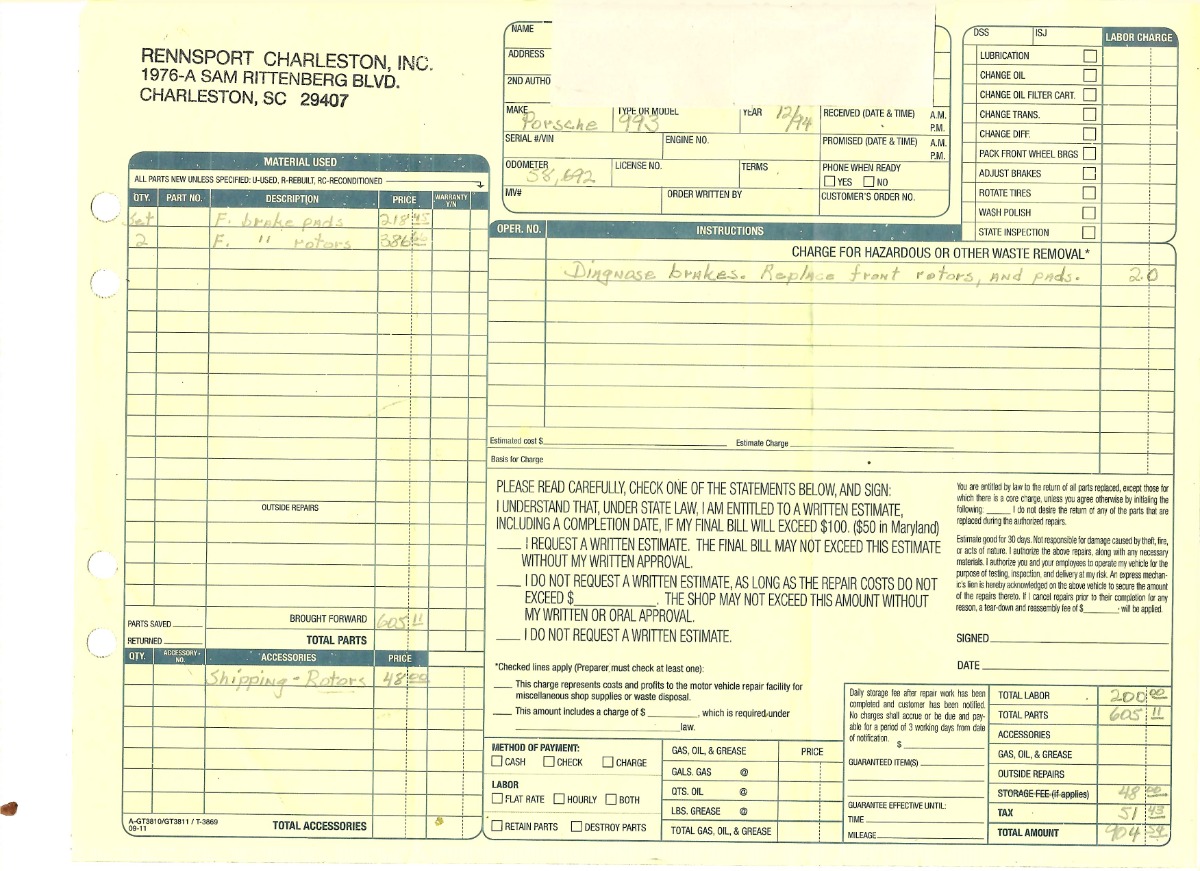 RENNSPORT CHARLESTON, INC.
1976-A SAM RITTENBERG BLVD.
CHARLESTON, SC 29407
NAME
ADDRESS
2ND AUTHO
MAKE Porsche TYPE OR MODEL 993 YEAR 12/94
RECEIVED (DATE & TIME) A.M. P.M.
SERIAL #/VIN ENGINE NO. PROMISED (DATE & TIME) A.M. P.M.
ODOMETER 58,692 LICENSE NO. TERMS PHONE WHEN READY
YES NO
MV# ORDER WRITTEN BY CUSTOMER'S ORDER NO.
DSS ISJ LABOR CHARGE
LUBRICATION
CHANGE OIL
CHANGE OIL FILTER CART.
CHANGE TRANS.
CHANGE DIFF.
PACK FRONT WHEEL BRGS
ADJUST BRAKES
ROTATE TIRES
WASH POLISH
STATE INSPECTION
MATERIAL USED
ALL PARTS NEW UNLESS SPECIFIED: U-USED, R-REBUILT, RC-RECONDITIONED
QTY. PART NO. DESCRIPTION PRICE WARRANTY Y/N
Set F. brake pads 218 45
2 F. " rotors 386 66
OUTSIDE REPAIRS
BROUGHT FORWARD 605 11
PARTS SAVED
RETURNED TOTAL PARTS
QTY. ACCESSORY NO. ACCESSORIES PRICE
Shipping - Rotors 48 00
A-GT3810/GT3811 / T-3869
09-11
TOTAL ACCESSORIES
OPER. NO. INSTRUCTIONS
CHARGE FOR HAZARDOUS OR OTHER WASTE REMOVAL*
Diagnase brakes. Replace front rotors, and pads. 2.0
Estimated cost $ Estimate Charge
Basis for Charge
PLEASE READ CAREFULLY, CHECK ONE OF THE STATEMENTS BELOW, AND SIGN:
I UNDERSTAND THAT, UNDER STATE LAW, I AM ENTITLED TO A WRITTEN ESTIMATE,
INCLUDING A COMPLETION DATE, IF MY FINAL BILL WILL EXCEED $100. ($50 in Maryland)
I REQUEST A WRITTEN ESTIMATE. THE FINAL BILL MAY NOT EXCEED THIS ESTIMATE
WITHOUT MY WRITTEN APPROVAL.
I DO NOT REQUEST A WRITTEN ESTIMATE, AS LONG AS THE REPAIR COSTS DO NOT
EXCEED $ . THE SHOP MAY NOT EXCEED THIS AMOUNT WITHOUT
MY WRITTEN OR ORAL APPROVAL.
I DO NOT REQUEST A WRITTEN ESTIMATE.
*Checked lines apply (Preparer must check at least one):
This charge represents costs and profits to the motor vehicle repair facility for
miscellaneous shop supplies or waste disposal.
This amount includes a charge of $ , which is required under
law.
You are entitled by law to the return of all parts replaced, except those for
which there is a core charge, unless you agree otherwise by initialing the
following: I do not desire the return of any of the parts that are
replaced during the authorized repairs.
Estimate good for 30 days. Not responsible for damage caused by theft, fire,
or acts of nature. I authorize the above repairs, along with any necessary
materials. I authorize you and your employees to operate my vehicle for the
purpose of testing, inspection, and delivery at my risk. An express mechan-
ic's lien is hereby acknowledged on the above vehicle to secure the amount
of the repairs thereto. If I cancel repairs prior to their completion for any
reason, a tear-down and reassembly fee of $ will be applied.
SIGNED
DATE
METHOD OF PAYMENT:
CASH CHECK CHARGE
LABOR
FLAT RATE HOURLY BOTH
RETAIN PARTS DESTROY PARTS
GAS, OIL, & GREASE PRICE
GALS. GAS @
QTS. OIL @
LBS. GREASE @
TOTAL GAS, OIL, & GREASE
Daily storage fee after repair work has been
completed and customer has been notified.
No charges shall accrue or be due and pay-
able for a period of 3 working days from date
of notification.
$
GUARANTEED ITEM(S)
GUARANTEE EFFECTIVE UNTIL:
TIME
MILEAGE
TOTAL LABOR 200 00
TOTAL PARTS 605 11
ACCESSORIES
GAS, OIL, & GREASE
OUTSIDE REPAIRS
STORAGE FEE (if applies) 48 00
TAX 51 43
TOTAL AMOUNT 904 54